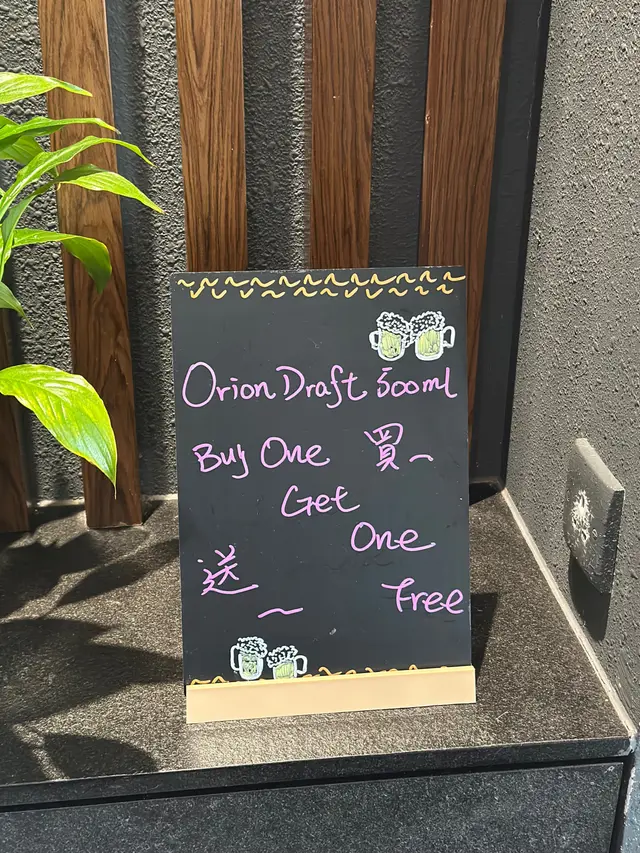 Orion Draft 500ml
Buy One 買一
Get
One
送 Free
一